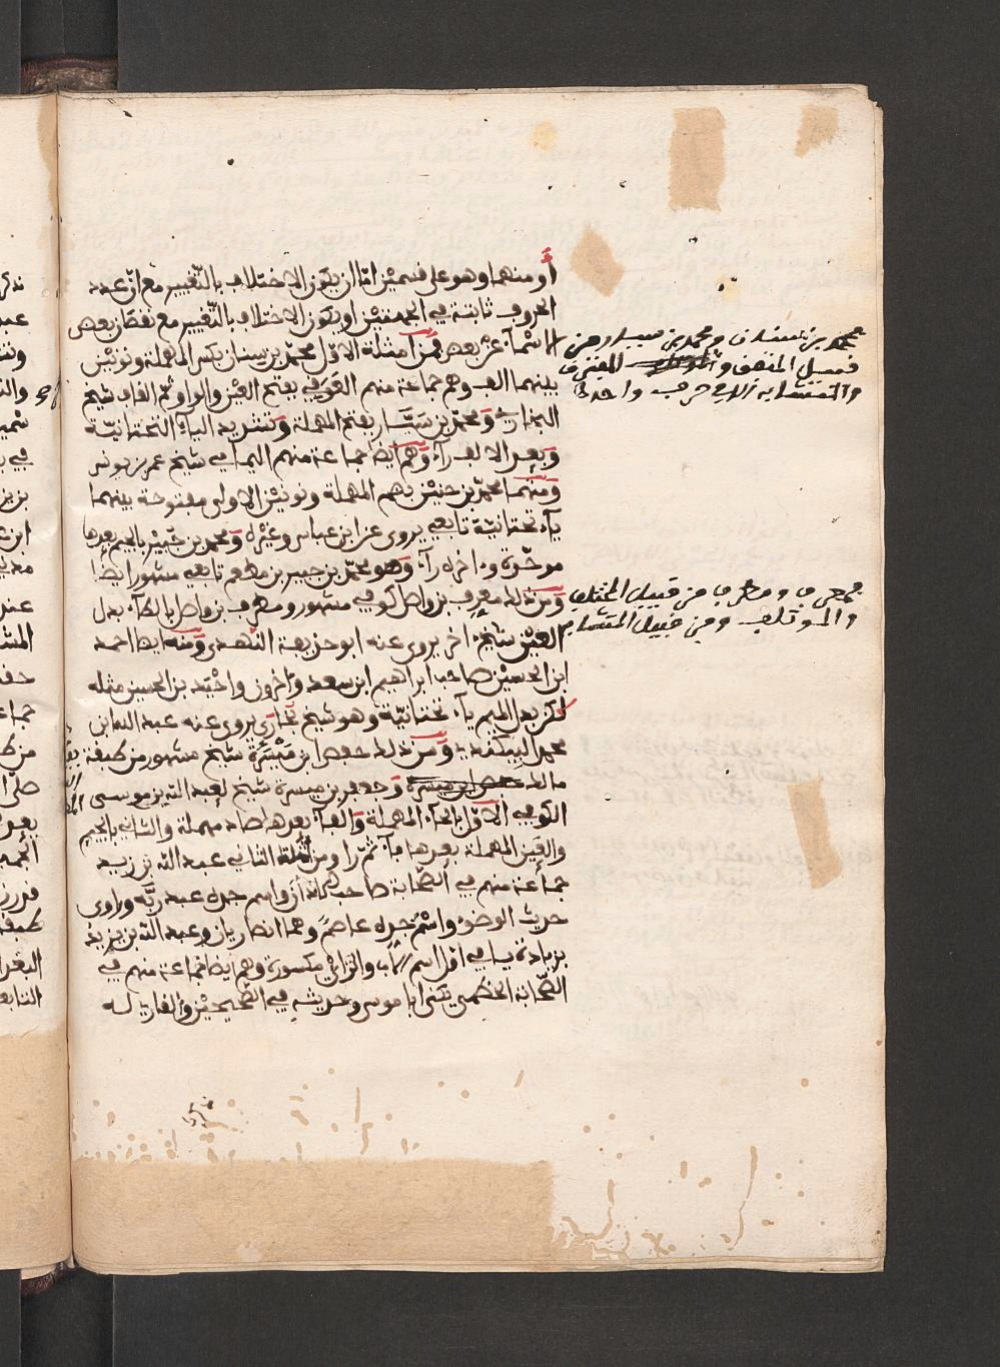 أو منهما وهو على قسمين اما ان يكون الاختلاف بالتغيير مع ان عدد
الحروف ثابتة في الجهتين او يكون الاختلاف بالتغيير مع نقصان بعض
الاسماء عن بعض فمن أمثلة الاول محمد بن سنان بكسر المهملة ونونين
بينهما الف وهم جماعة منهم العوقي بفتح العين والواو ثم القاف شيخ
البخاري ومحمد بن سيار بفتح المهملة وتشديد الياء التحتانية
وبعد الالف راء وهم ايضا جماعة منهم اليمامي شيخ عمر بن يونس
ومنهما محمد بن حنين بضم المهملة ونونين الاولى مفتوحة بينهما
ياء تحتانية تابعي يروي عن ابن عباس وغيره ومحمد بن جبير بالجيم بعدها
موحدة وءاخره راء وهو محمد بن جبير بن مطعم تابعي مشهور ايضا
ومن ذلك معرف بن واصل كوفي مشهور ومطرف بن واصل بالطاء بدل
العين شيخ ءاخر يروي عنه ابو حذيفة النهدي ومنه ايضا احمد
ابن الحسين صاحب ابراهيم ابن سعد وءاخرون واحيد بن الحسين مثله
لكن بدل الميم ياء تحتانية وهو شيخ بخاري يروي عنه عبد الله ابن
محمد البيكندي ومن ذلك حفص ابن ميسرة شيخ مشهور من طبقة
مالك حفص ابن ميسرة وجعفر بن ميسرة شيخ لعبد الله بن موسى
الكوفي الاول بالحاء المهملة والفاء بعدها صاد مهملة والثاني بالجيم
والعين المهملة بعدها فاء ثم را ومن أمثلة الثاني عبد الله بن زيد
جماعة منهم في الصحابة صاحب الاذان واسم جده عبد ربه وراوي
حديث الوضوء واسم جده عاصم وهما انصاريان وعبد الله بن يزيد
بزيادة يا في اول اسم الاب والزاي مكسورة وهم ايضا جماعة منهم في
الصحابة الخطمي يكنى ابا موسى وحديثه في الصحيحين والقاري له
محمد بن سنان ومحمد بن سيار من
قبيل المتفق و المفترق
والمتشابه
فمعرف ومطرف من قبيل المختلف
والموتلف ومن قبيل المتشابه